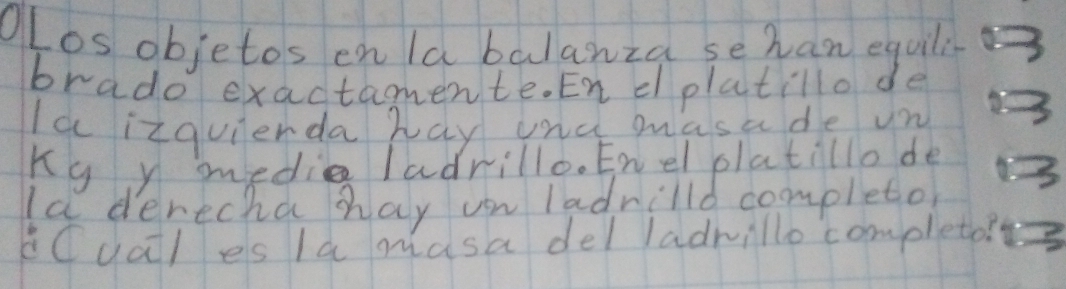 Los objetos en la balanza se han equili-
brado exactamente. En el platillo de
la izquierda hay una masa de un
Kg y medio ladrillo. En el platillo de
la derecha hay un ladrillo completo,
¿Cuál es la masa del ladrillo completo?